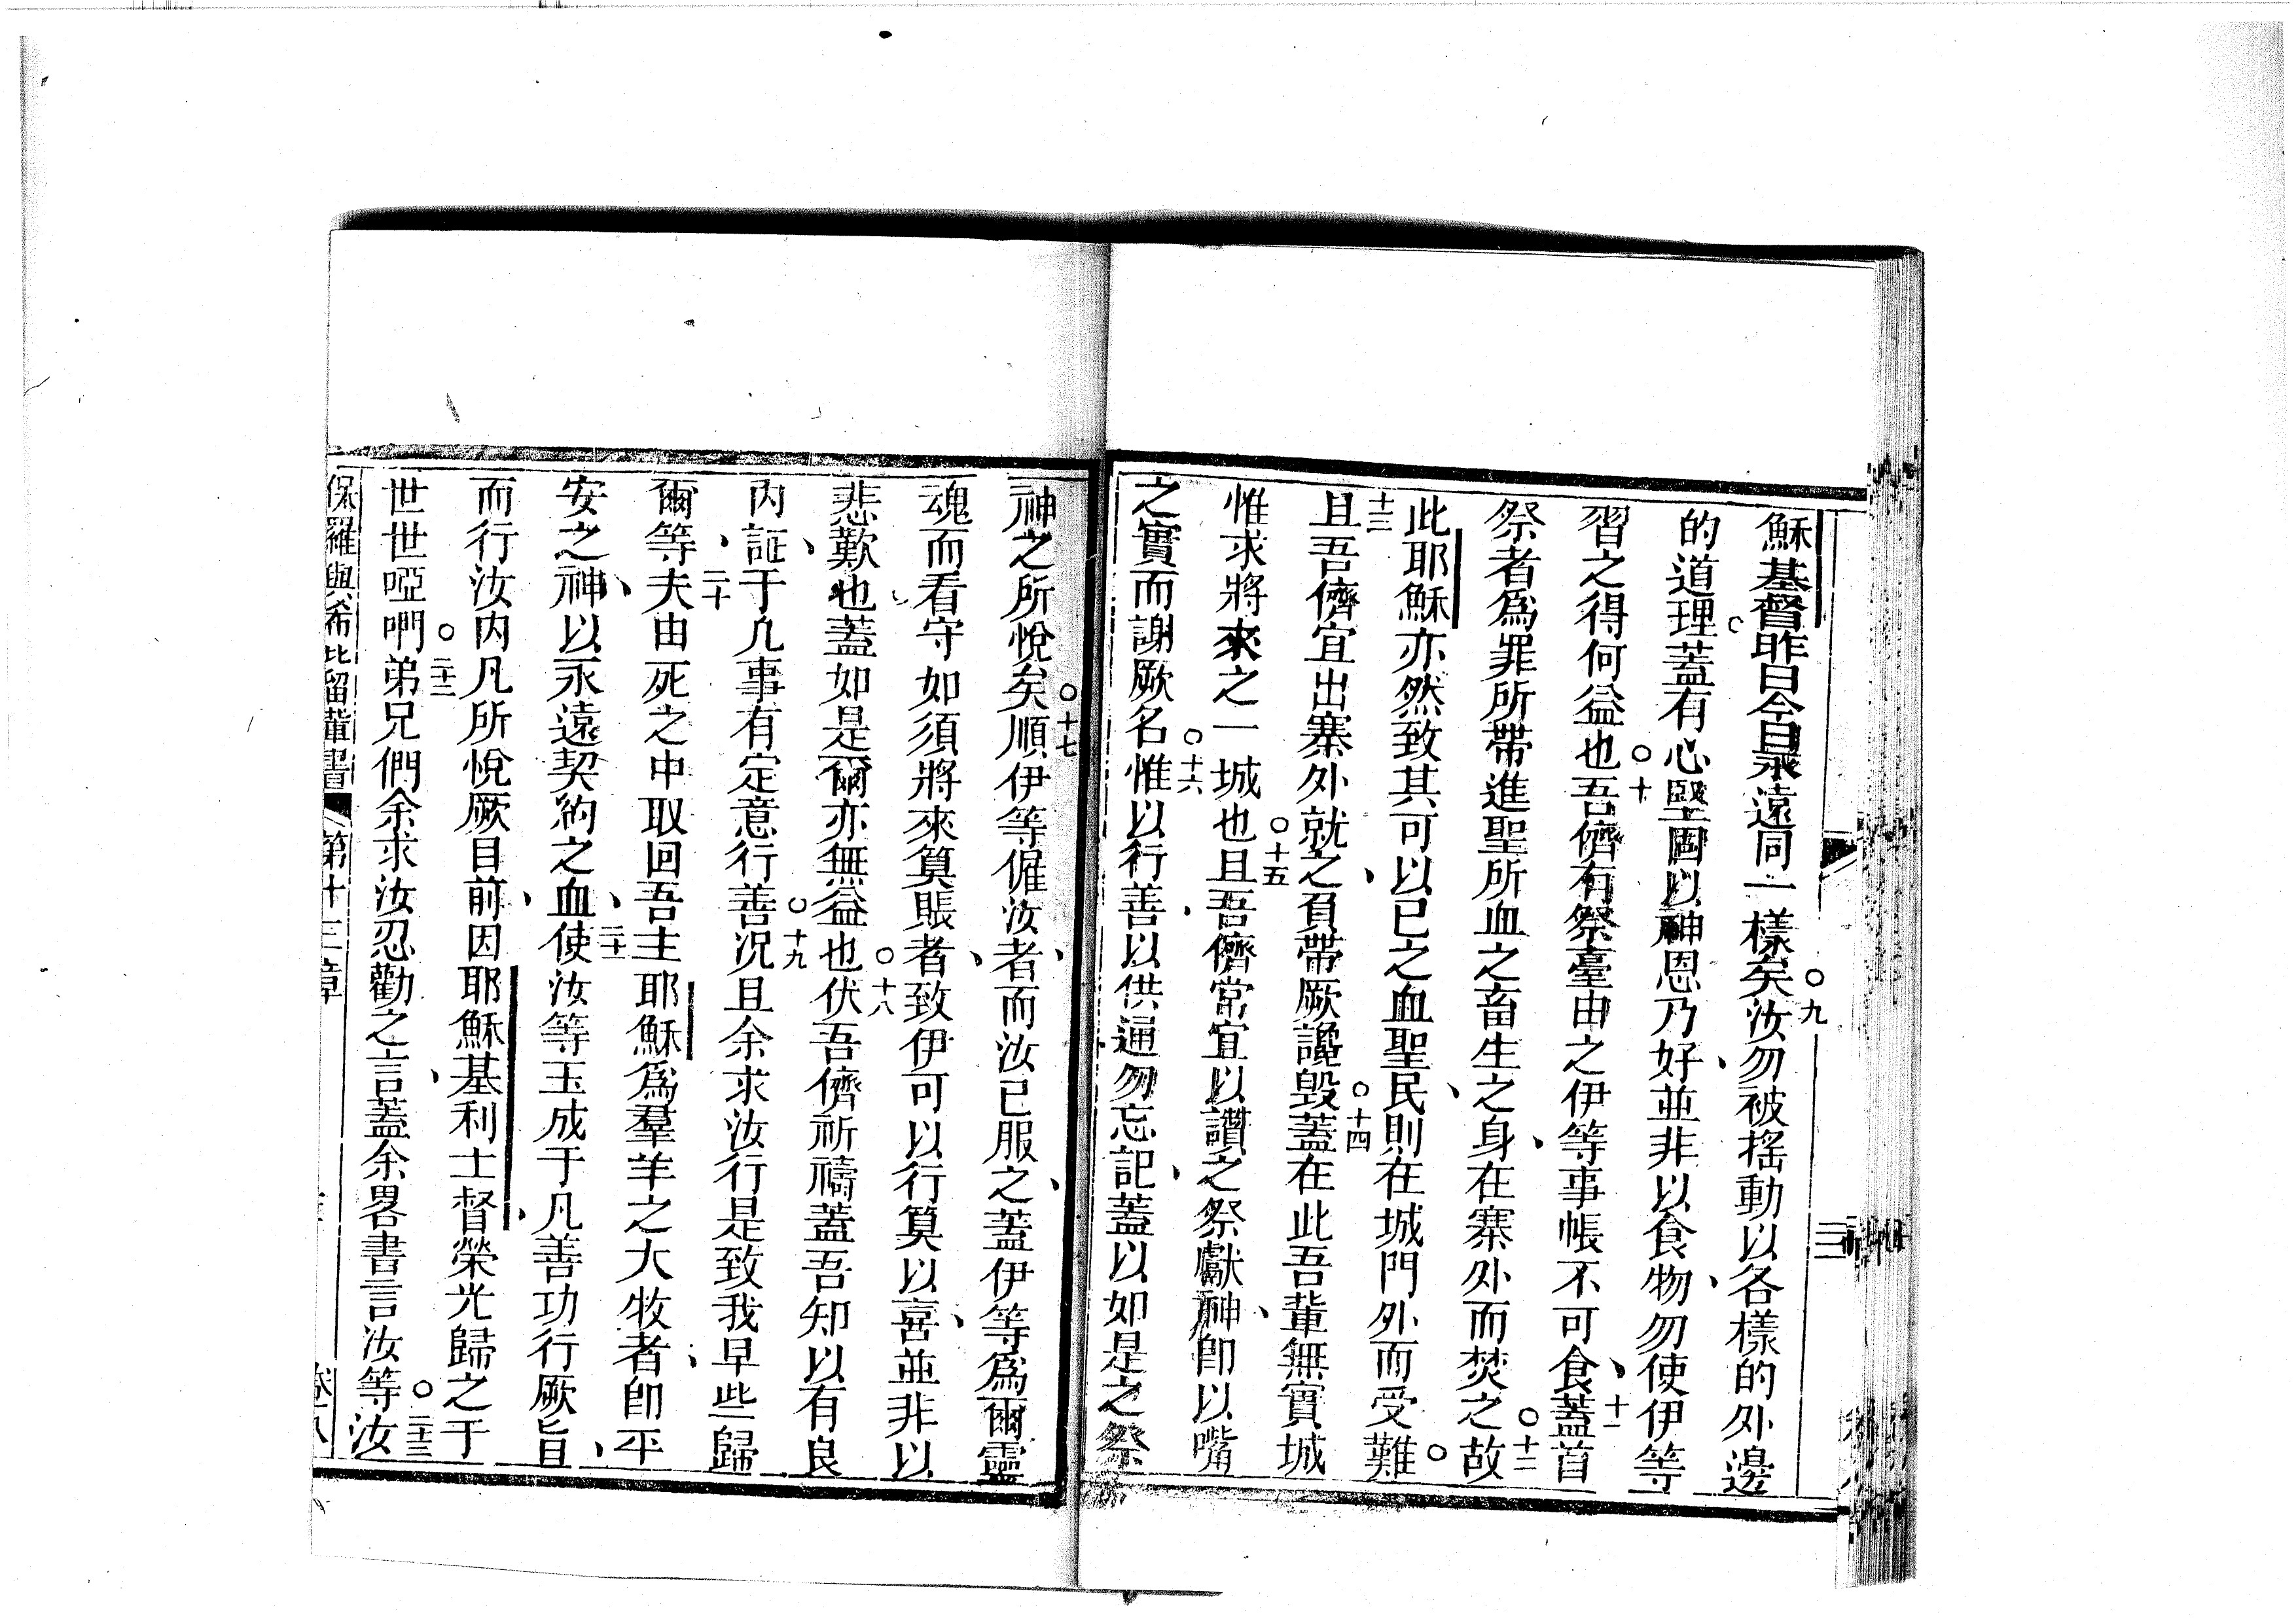 穌基督昨日今日永遠同一樣矣○九汝勿被搖動以各樣的外邊
的道理蓋有心堅固以神恩乃好並非以食物勿使伊等
習之得何益也○十吾儕有祭臺由之伊等事帳不可食十一蓋首
祭者爲罪所帶進聖所血之畜生之身在寨外而焚之○十二故
此耶穌亦然致其可以己之血聖民則在城門外而受難○
十三且吾儕宜出寨外就之負帶厥讒毀○十四蓋在此吾輩無實城
惟求將來之一城也○十五且吾儕常宜以讚之祭獻神卽以嘴
之實而謝厥名○十六惟以行善以供逼勿忘記蓋以如是之祭
神之所悅矣○十七順伊等僱汝者而汝已服之蓋伊等爲爾靈
魂而看守如須將來算賬者致伊可以行算以喜並非以
悲歎也蓋如是爾亦無益也○十八伏吾儕祈禱蓋吾知以有良
內証于凡事有定意行善○十九况且余求汝行是致我早些歸
爾等二十夫由死之中取回吾主耶穌爲羣羊之大牧者卽平
安之神以永遠契約之血二十一使汝等玉成于凡善功行厥旨
而行汝內凡所悅厥目前因耶穌基利士督榮光歸之于
世世啞吧○二十二弟兄們余求汝忍勸之言蓋余畧書言汝等○二十三汝
保羅與希比留輩書 第十三章 卷八